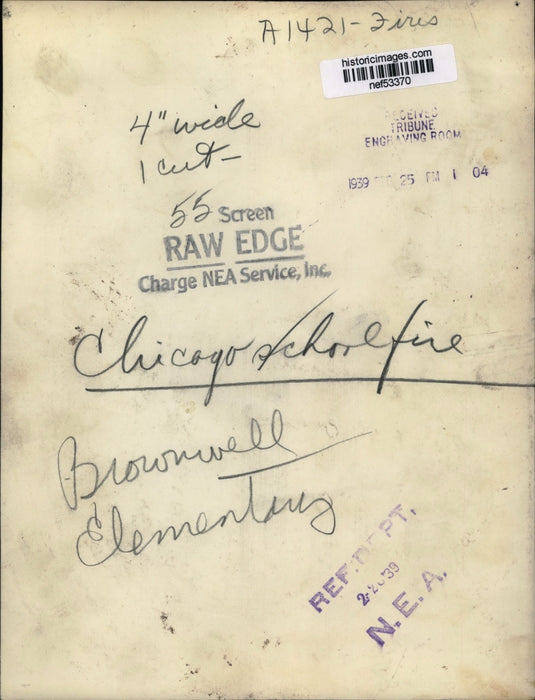 A1421-Fires
historicimages.com
nef53370
RECEIVED
TRIBUNE
ENGRAVING ROOM
1939 25 PM 1 04
4" wide
1 cut-
55 Screen
RAW EDGE
Charge NEA Service, Inc.
Chicago school fire
Brownwell
Elementary
REF. DEPT.
2-2 39
N.E.A.